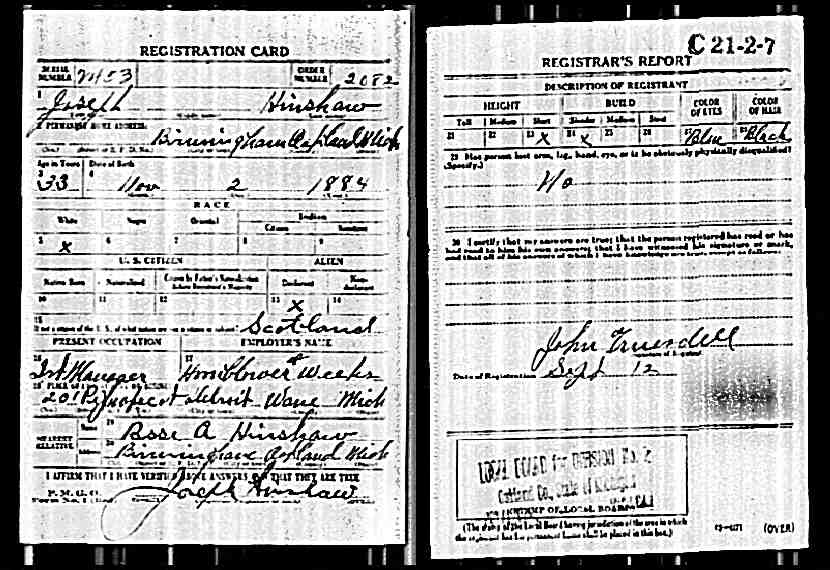 REGISTRATION CARD
SERIAL NUMBER
ORDER NUMBER 2082
1 Joseph Hinshaw
2 PERMANENT HOME ADDRESS:
Birmingham Oakland Mich
Age in Years Date of Birth
3 33 4 Nov 2 1884
RACE
White Negro Oriental Indian
Citizen
5 x 6 7 8 9
U. S. CITIZEN ALIEN
Native Born Naturalized Declarant
10 11 12 13 x 14
15 Scotland
PRESENT OCCUPATION EMPLOYER'S NAME
16 Manager 17 Hornblower & Weeks
18 Detroit Mich
NEAREST RELATIVE Name 19 A Hinshaw
Address 20 Mich
I AFFIRM THAT I HAVE VERIFIED ABOVE ANSWERS AND THAT THEY ARE TRUE
P. M. G. O.
Joseph Hinshaw
C 21-2-7
REGISTRAR'S REPORT
DESCRIPTION OF REGISTRANT
HEIGHT BUILD COLOR OF EYES COLOR OF HAIR
Tall Medium Short Slender Medium Stout
21 22 23 x 24 x 25 26 27 Blue 28 Black
29 Has person lost arm, leg, hand, eye, or is he obviously physically disqualified?
(Specify.)
No
30 I certify that my answers are true; that the person registered has read or has
had read to him his own answers; that I have witnessed his signature or mark,
and that all of his answers of which I have knowledge are true, except as follows:
John Truesdell
Date of Registration Sept 12
LOCAL BOARD for DIVISION No. 2
Oakland Co., State of Michigan
(STAMP OF LOCAL BOARD)
(The stamp of the Local Board having jurisdiction of the area in which
the registrant has his permanent home shall be placed in this box.)
(OVER)